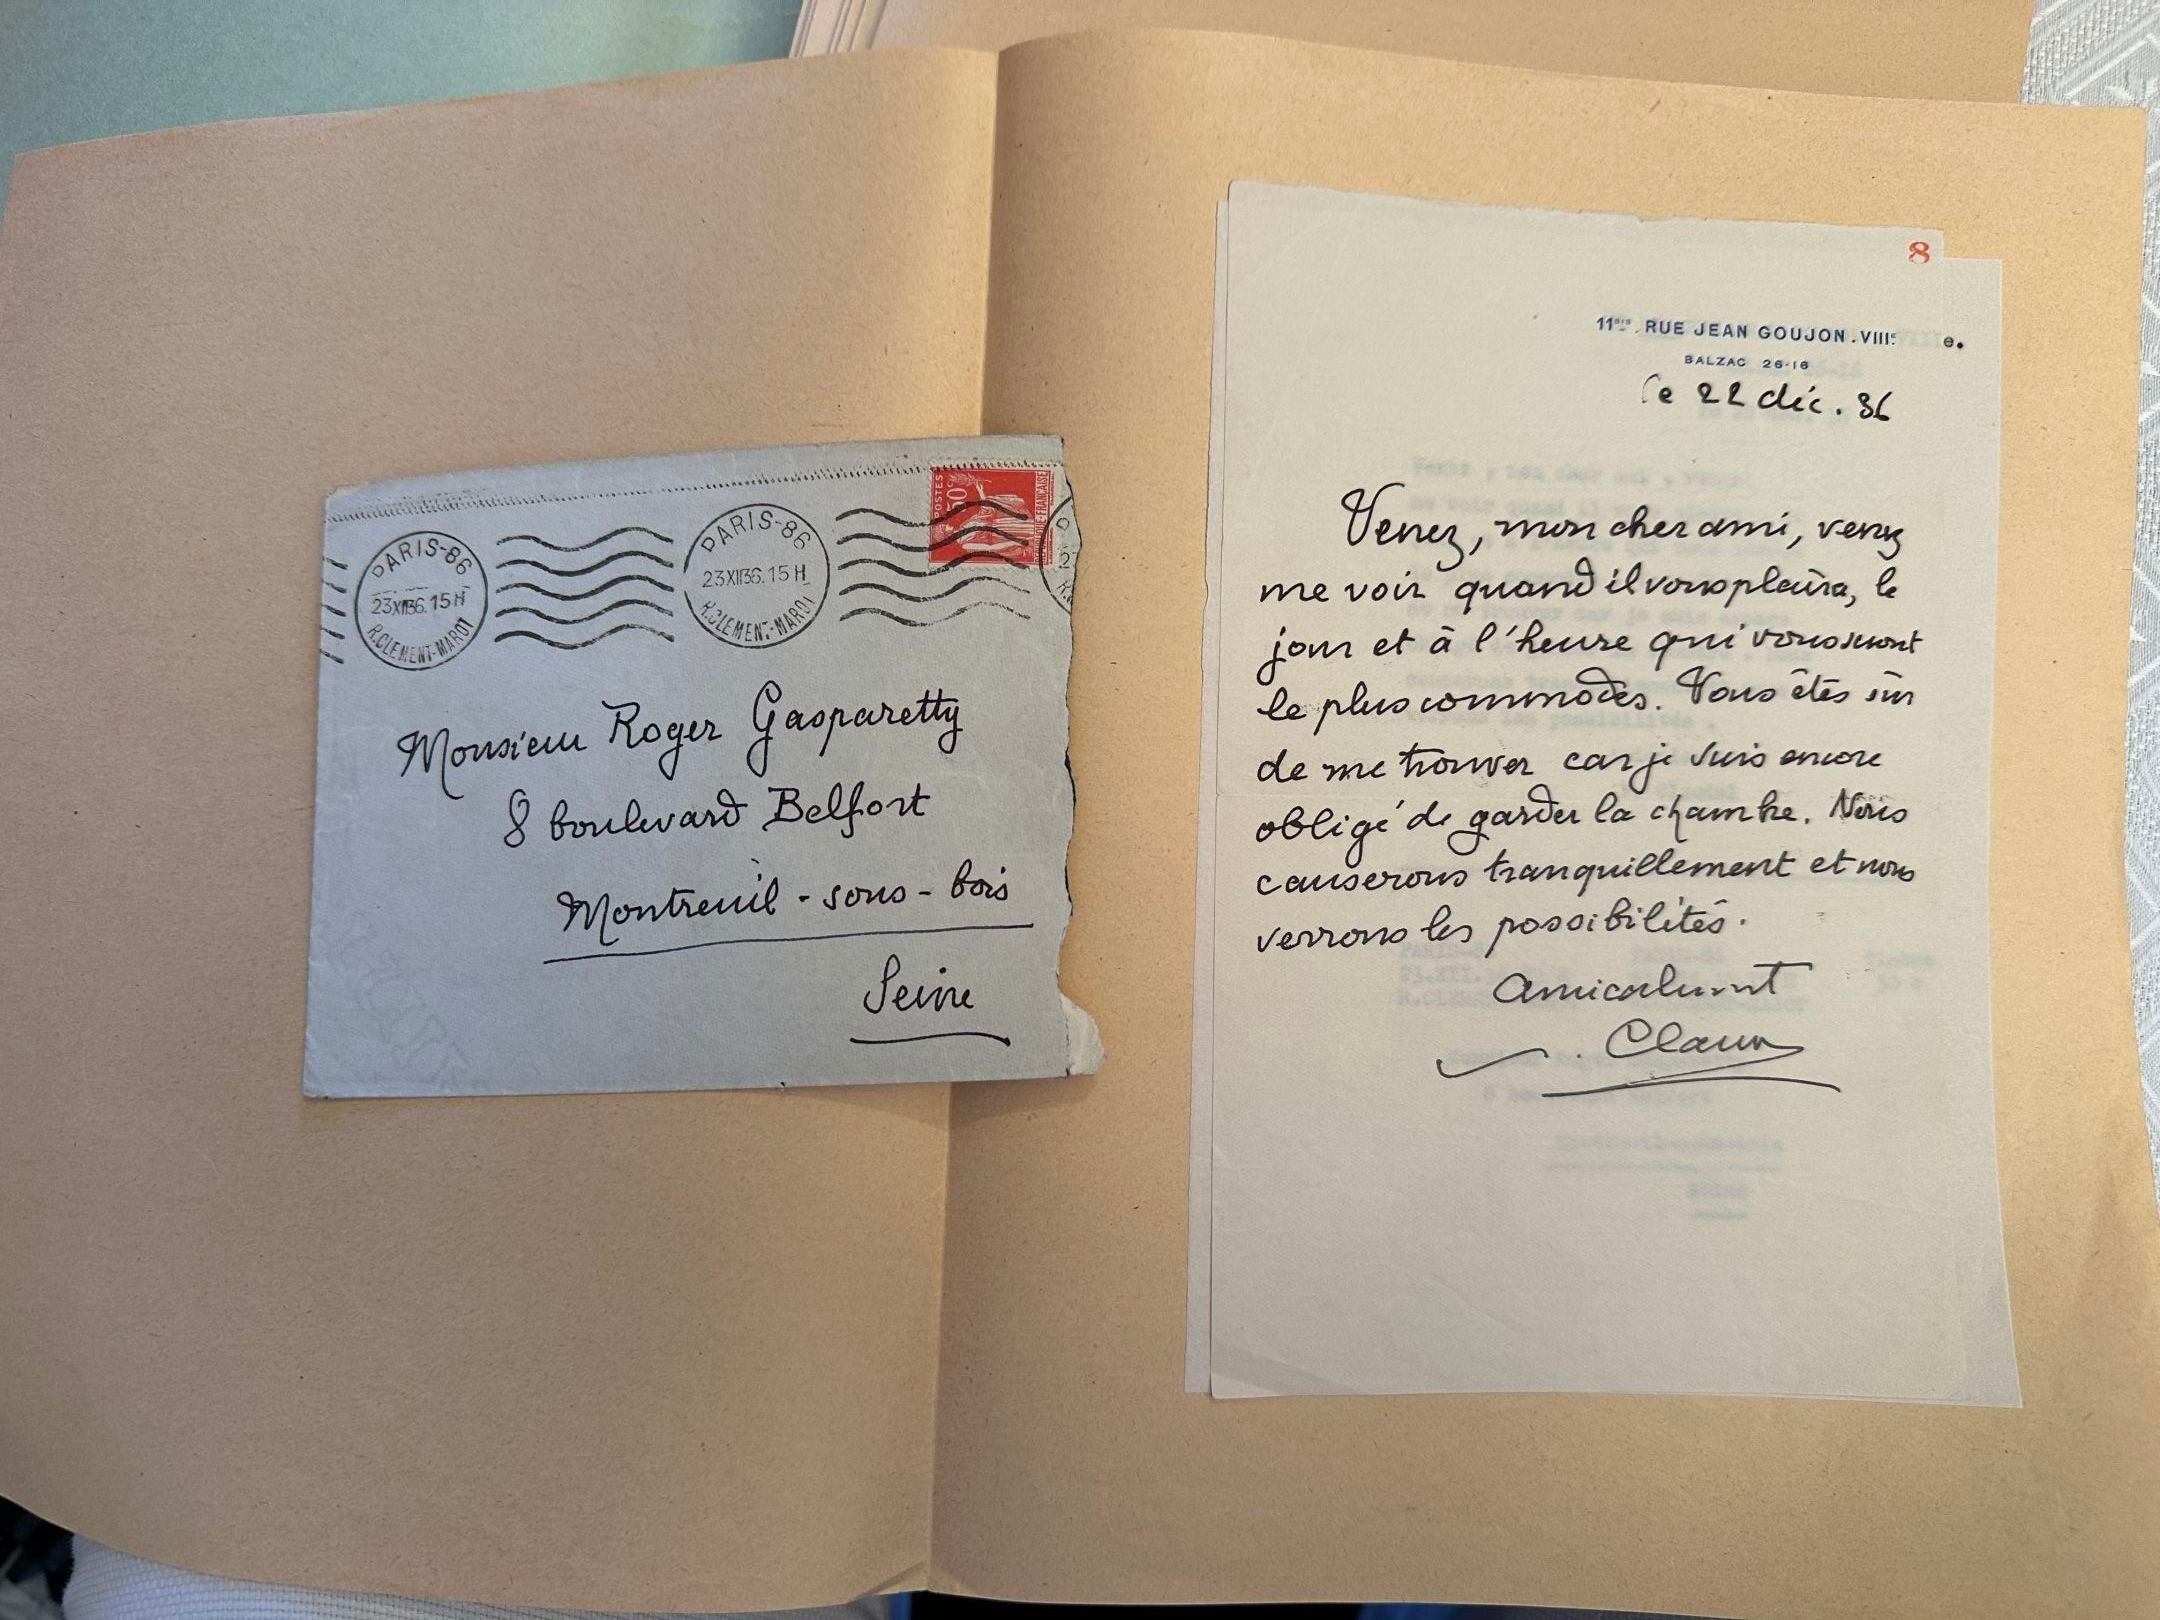 PARIS-86
23XII36.15H
R.CLEMENT-MAROT
PARIS-86
23XII36.15H
R.CLEMENT-MAROT
POSTES
50c
REPUBLIQUE-FRANCAISE
Monsieur Roger Gasparetty
8 boulevard Belfort
Montreuil-sous-bois
Seine
8
11BIS. RUE JEAN GOUJON. VIIIE. e.
BALZAC 26-16
le 22 déc. 36
Venez, mon cher ami, venez
me voir quand il vous plaira, le
jour et à l'heure qui vous seront
le plus commodes. Vous êtes sûr
de me trouver car je suis encore
obligé de garder la chambre. Nous
causerons tranquillement et nous
verrons les possibilités.
Amicalement